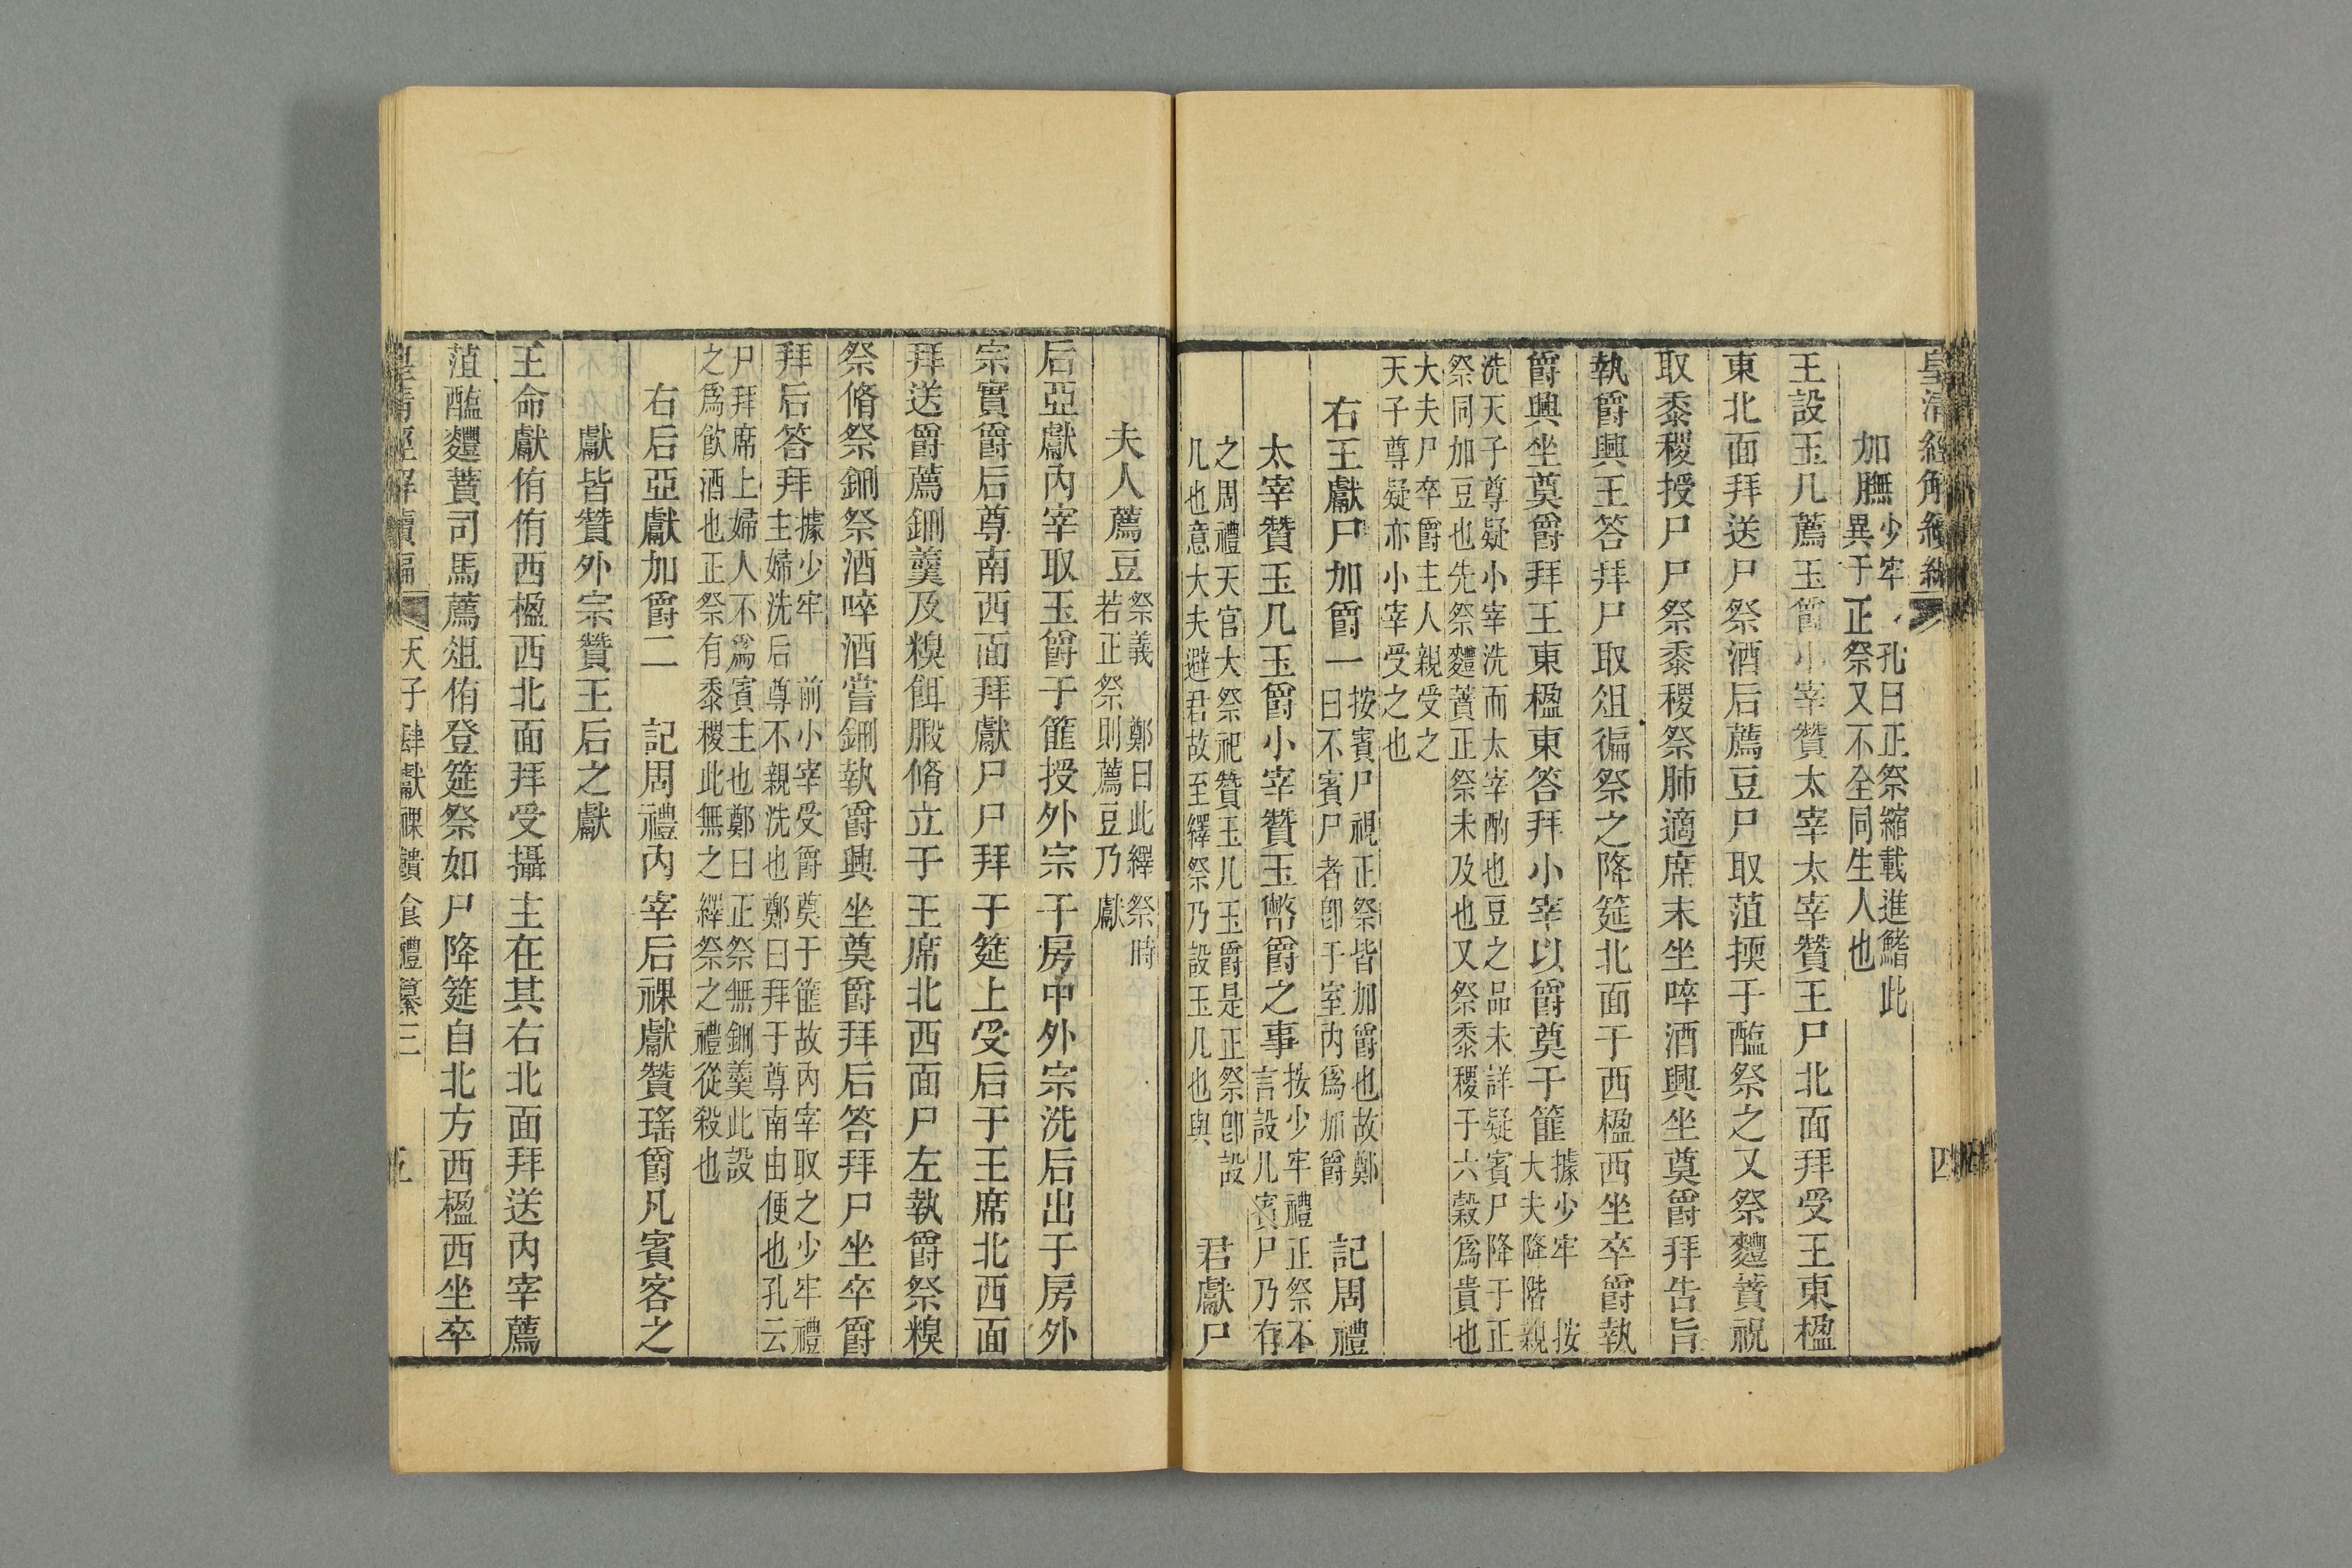 皇清經解續編
四
加膴
少牢 孔曰正祭縮載進鰭此
異于正祭又不全同生人也
王設玉几薦玉爵小宰贊太宰太宰贊王尸北面拜受王東楹
東北面拜送尸祭酒后薦豆尸取菹㨎于醢祭之又祭麷蕡祝
取黍稷授尸尸祭黍稷祭肺適席末坐啐酒興坐奠爵拜告旨
執爵興王答拜尸取俎徧祭之降筵北面于西楹西坐卒爵執
爵興坐奠爵拜王東楹東答拜小宰以爵奠于篚
據少牢 按
大夫降階親
洗天子尊疑小宰洗而太宰酌也豆之品未詳疑賓尸降于正
祭同加豆也先祭麷蕡正祭未及也又祭黍稷于六穀爲貴也
大夫尸卒爵主人親受之
天子尊疑亦小宰受之也
右王獻尸加爵一
按賓尸視正祭皆加爵也故鄭
曰不賓尸者卽于室內爲加爵
記周禮
太宰贊玉几玉爵小宰贊玉幣爵之事
按少牢禮正祭不
言設几賓尸乃存
之周禮天官大祭祀贊玉几玉爵是正祭卽設
几也意大夫避君故至繹祭乃設玉几也與
君獻尸
夫人薦豆
祭義 鄭曰此繹祭時
若正祭則薦豆乃獻
后亞獻內宰取玉爵于篚授外宗于房中外宗洗后出于房外
宗實爵后尊南西面拜獻尸尸拜于筵上受后于王席北西面
拜送爵薦鉶羹及糗餌腶脩立于王席北西面尸左執爵祭糗
祭脩祭鉶祭酒啐酒嘗鉶執爵興坐奠爵拜后答拜尸坐卒爵
拜后答拜
據少牢 前小宰受爵奠于篚故內宰取之少牢禮
主婦洗后尊不親洗也鄭曰拜于尊南由便也孔云
尸拜席上婦人不爲賓主也鄭曰正祭無鉶羹此設
之爲飲酒也正祭有黍稷此無之繹祭之禮從殺也
右后亞獻加爵二 記周禮內宰后祼獻贊瑤爵凡賓客之
獻皆贊外宗贊王后之獻
王命獻侑侑西楹西北面拜受攝主在其右北面拜送內宰薦
菹醢麷蕡司馬薦俎侑登筵祭如尸降筵自北方西楹西坐卒
皇清經解續編 天子肆獻祼饋食禮纂三 五